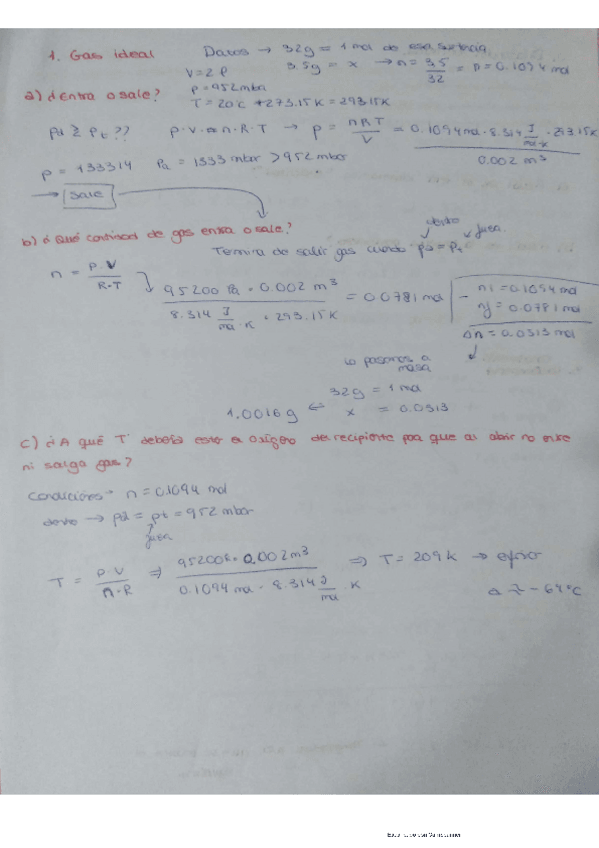 1. Gas ideal Datos → 32g = 1 mol de esa sustancia
V=2 l 3.5g = x → n = 3,5/32 = n = 0.1094 mol
a) ¿Entra o sale? p = 952 mbar
T = 20°C +273.15K = 293.15K
Pd ≥ Pt ?? p·V = n·R·T → p = nRT/V = 0.1094 mol · 8.314 J/mol·K · 293.15K / 0.002 m³
p = 133314 Pd = 1333 mbar > 952 mbar
→ Sale
b) ¿Qué cantidad de gas entra o sale?
Termina de salir gas cuando pd = pt
dentro fuera.
n = p·V/R·T 95200 Pa · 0.002 m³ / 8.314 J/mol·K · 293.15K = 0.0781 mol
ni = 0.1094 mol
nf = 0.0781 mol
Δn = 0.0313 mol
↳ pasamos a masa
32g = 1 mol
1.0016 g ⇐ x = 0.0313
c) ¿A qué T° debería estar el oxígeno del recipiente para que al abrir no entre
ni salga gas?
Condiciones n = 0.1094 mol
dentro → pd = pt = 952 mbar
fuera
T = p·V/n·R ⇒ 95200 · 0.002 m³ / 0.1094 mol · 8.314 J/mol · K ⇒ T = 209 K →
-64°C